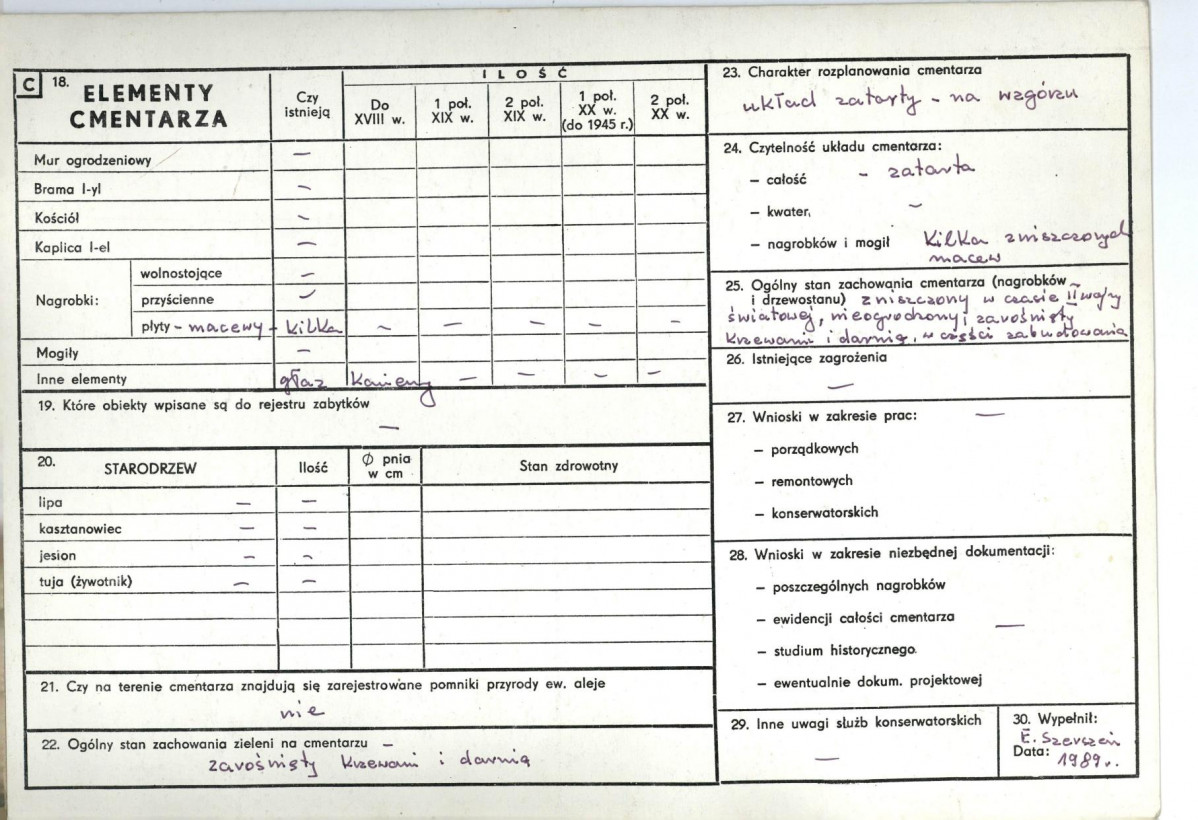 C 18. ELEMENTY CMENTARZA
Czy istnieją
ILOŚĆ
Do XVIII w.
1 poł. XIX w.
2 poł. XIX w.
1 poł. XX w. (do 1945 r.)
2 poł. XX w.
Mur ogrodzeniowy –
Brama l-yl –
Kościół –
Kaplica l-el –
Nagrobki:
wolnostojące –
przyścienne –
płyty – macewy – kilka – – – – –
Mogiły –
Inne elementy głaz kamieny – – – –
19. Które obiekty wpisane są do rejestru zabytków
–
20. STARODRZEW Ilość Ø pnia w cm Stan zdrowotny
lipa – –
kasztanowiec – –
jesion – –
tuja (żywotnik) – –
21. Czy na terenie cmentarza znajdują się zarejestrowane pomniki przyrody ew. aleje
nie
22. Ogólny stan zachowania zieleni na cmentarzu –
zarośnięty krzewami i darnią
23. Charakter rozplanowania cmentarza
układ zatarty – na wzgórzu
24. Czytelność układu cmentarza:
– całość – zatarta
– kwater, –
– nagrobków i mogił kilka zniszczonych
macew
25. Ogólny stan zachowania cmentarza (nagrobków –
i drzewostanu) zniszczony w czasie II wojny
światowej, nieogrodzony, zarośnięty
krzewami i darnią, w części zabudowania
26. Istniejące zagrożenia
–
27. Wnioski w zakresie prac: –
– porządkowych
– remontowych
– konserwatorskich
28. Wnioski w zakresie niezbędnej dokumentacji:
– poszczególnych nagrobków
– ewidencji całości cmentarza –
– studium historycznego
– ewentualnie dokum. projektowej
29. Inne uwagi służb konserwatorskich
–
30. Wypełnił:
E. Szerszeń
Data: 1989 r.